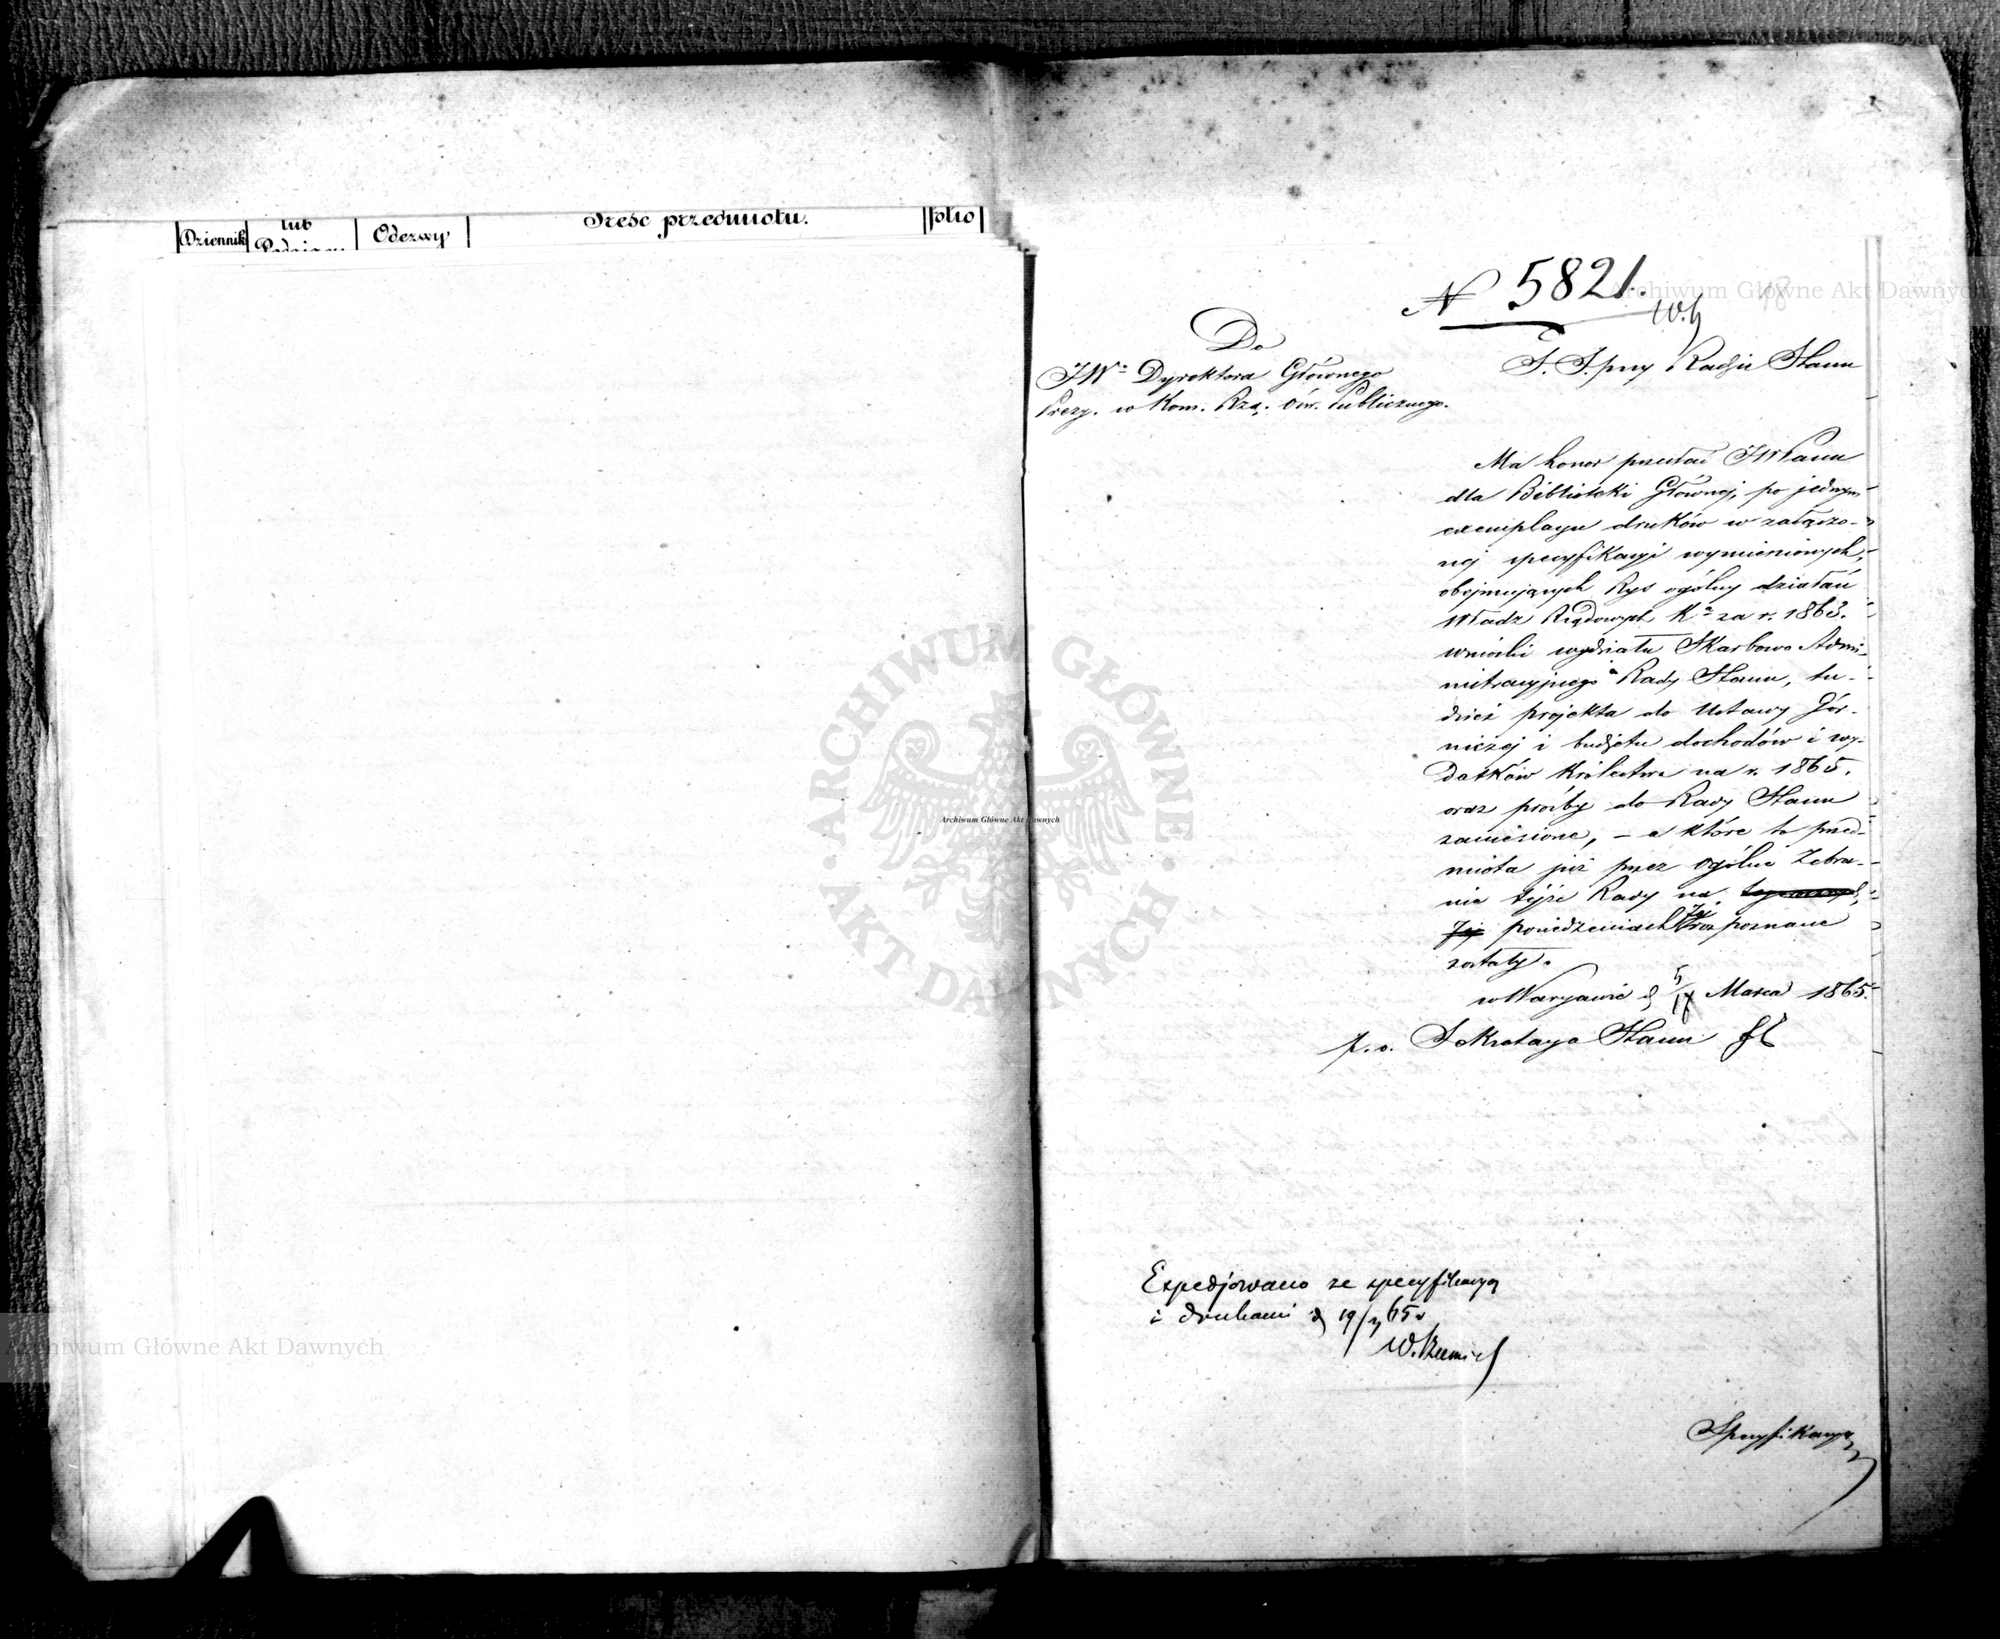 Dziennik
lub
Odezwy
Treść przedmiotu.
folio
N 5821.
Do
JWo Dyrektora Głównego
Prezy. w Kom. Rzą. Ośw. Publicznego.
S. S. przy Radzie Stanu
Ma honor przesłać JWPanu
dla Biblioteki Głównej, po jednym
exemplarzu druków w załączo-
nej specyfikacyi wymienionych,
obejmujących Rys ogólny działań
Władz Rządowych Ka za r. 1863.
wnioski wydziału Skarbowo Admi-
nistracyjnego Rady Stanu, tu-
dzież projekta do Ustawy Gór-
niczej i budżetu dochodów i wy-
datków Królestwa na r. 1865.
oraz prośby do Rady Stanu
zaniesione, – a które to przed-
miota już przez ogólne Zebra-
nie tejże Rady na
Jej posiedzeniach Jej rozpoznane
zostały.
w Warszawie d 5/17 Marca 1865.
p. o. Sekretarza Stanu
Expedjowano ze specyfikacyą
i drukami d 19/3 65 r
Specyfikacya
Archiwum Główne Akt Dawnych
ARCHIWUM GŁÓWNE
AKT DAWNYCH
Archiwum Główne Akt Dawnych
Archiwum Główne Akt Dawnych